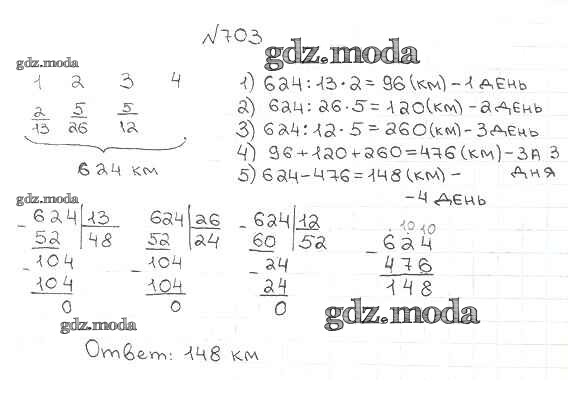 №703
gdz.moda
gdz.moda
1 2 3 4
2/13 5/26 5/12
624 км
1) 624:13·2=96(км)-1 день
2) 624:26·5=120(км)-2 день
3) 624:12·5=260(км)-3 день
4) 96+120+260=476(км)-за 3 дня
5) 624-476=148(км)-
-4 день
gdz.moda
-624|13
52 48
-104
104
0
624|26
52 24
-104
104
0
-624|12
60 52
-24
24
0
.10 10
-624
476
148
gdz.moda
gdz.moda
Ответ: 148 км